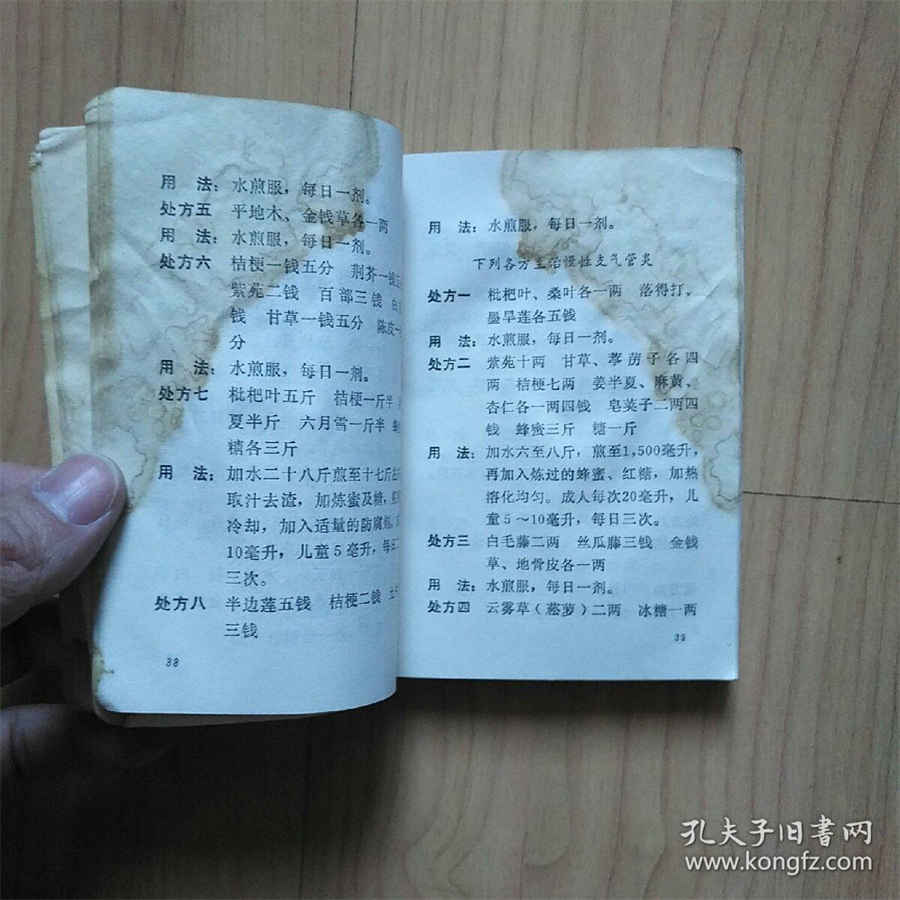 用 法：水煎服，每日一剂。
处方五 平地木、金钱草各一两
用 法：水煎服，每日一剂。
处方六 桔梗一钱五分 荆芥一钱五
紫苑二钱 百部三钱 白
钱 甘草一钱五分 陈皮一
分
用 法：水煎服，每日一剂。
处方七 枇杷叶五斤 桔梗一斤半
夏半斤 六月雪一斤半
糖各三斤
用 法：加水二十八斤煎至十七斤
取汁去渣，加炼蜜及糖，
冷却，加入适量的防腐剂，
10毫升，儿童5毫升，每日
三次。
处方八 半边莲五钱 桔梗二钱
三钱
38
用 法：水煎服，每日一剂。
下列各方主治慢性支气管炎
处方一 枇杷叶、桑叶各一两 落得打、
墨旱莲各五钱
用 法：水煎服，每日一剂。
处方二 紫苑十两 甘草、葶苈子各四
两 桔梗七两 姜半夏、麻黄、
杏仁各一两四钱 皂荚子二两四
钱 蜂蜜三斤 糖一斤
用 法：加水六至八斤，煎至1,500毫升，
再加入炼过的蜂蜜、红糖，加热
溶化均匀。成人每次20毫升，儿
童5～10毫升，每日三次。
处方三 白毛藤二两 丝瓜藤三钱 金钱
草、地骨皮各一两
用 法：水煎服，每日一剂。
处方四 云雾草（菘萝）二两 冰糖一两
39
孔夫子旧書网
www.kongfz.com